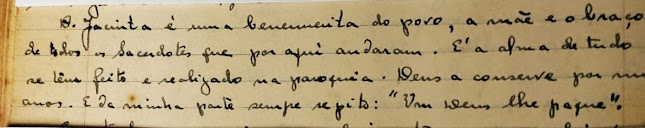 D. Jacinta é uma benemerita do povo, a mãe e o braço
de todos os Sacerdotes que por aqui andaram. E' a alma de tudo
se têm feito e realizado na paroquia. Deus a conserve por
anos. E da minha parte sempre repito: "Um Deus lhe pague".